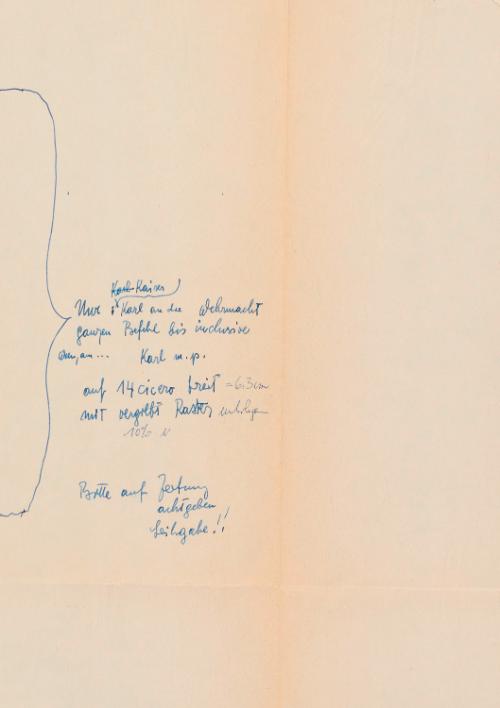 Karl Kaiser
Nur Karl an die Wehrmacht
ganzen Befehl bis inclusive
Karl m.p.
auf 14 cicero breit = 6.3 cm
mit vergilbt Raster
10%
Bitte auf Zeitung
achtgeben
Leihgabe!!